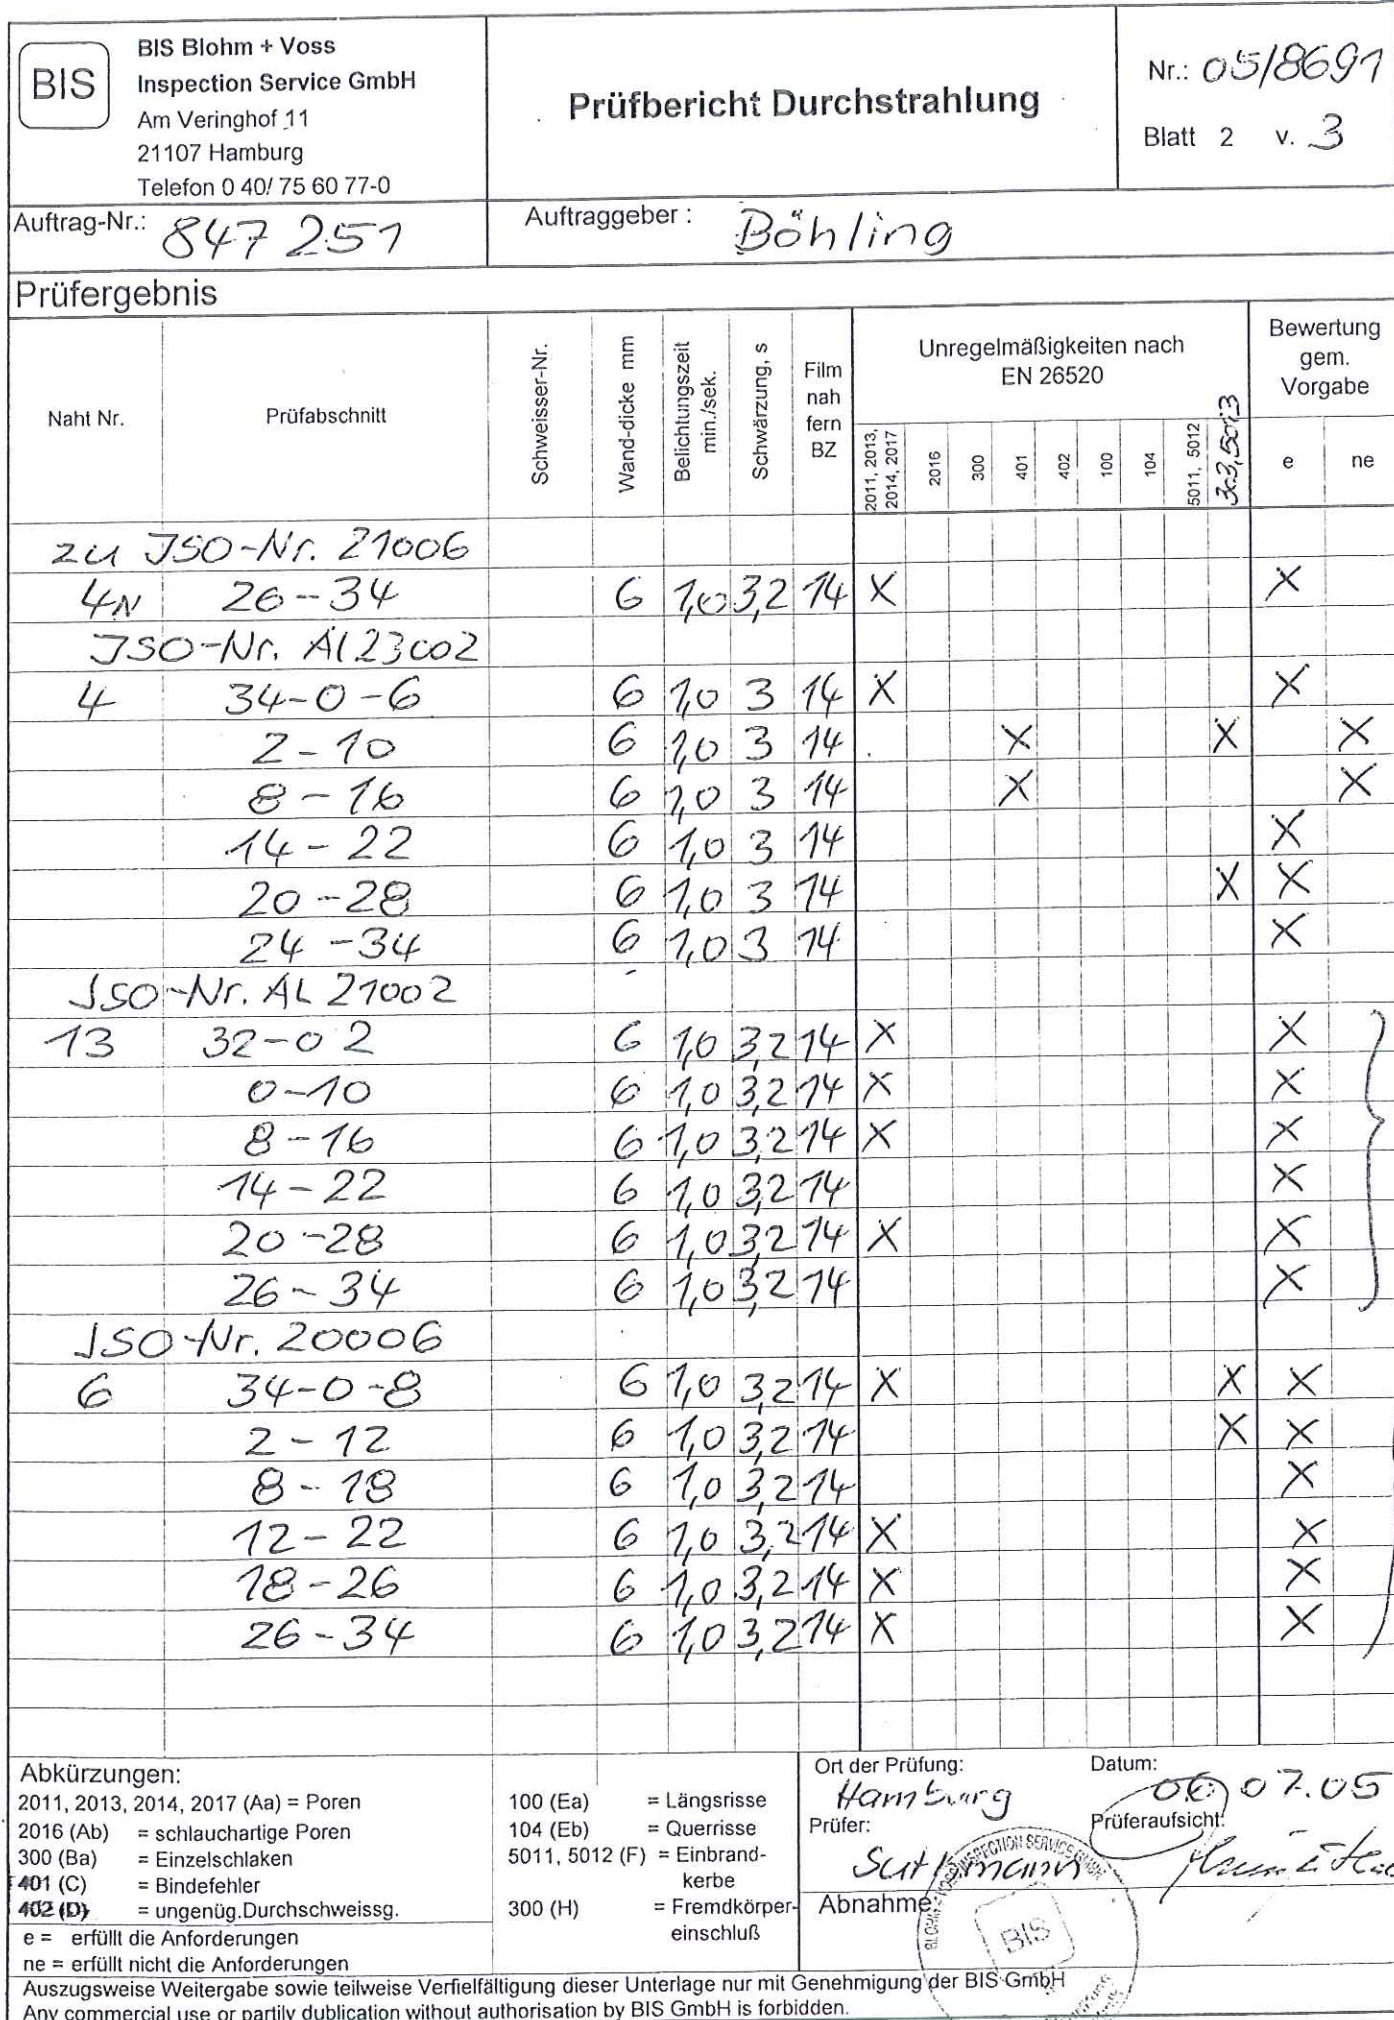 BIS
BIS Blohm + Voss
Inspection Service GmbH
Am Veringhof 11
21107 Hamburg
Telefon 0 40/ 75 60 77-0
Prüfbericht Durchstrahlung
Nr.: 05/8691
Blatt 2 v. 3
Auftrag-Nr.: 847 251
Auftraggeber : Böhling
Prüfergebnis
Naht Nr.
Prüfabschnitt
Schweisser-Nr.
Wand-dicke mm
Belichtungszeit
min./sek.
Schwärzung, s
Film
nah
fern
BZ
Unregelmäßigkeiten nach
EN 26520
2011, 2013,
2014, 2017
2016
300
401
402
100
104
5011, 5012
303, 5013
Bewertung
gem.
Vorgabe
e
ne
zu ISO-Nr. 21006
4N 26-34 6 1,0 3,2 14 X X
ISO-Nr. Al 23002
4 34-0-6 6 1,0 3 14 X X
2-10 6 1,0 3 14 X X X
8-16 6 1,0 3 14 X X
14-22 6 1,0 3 14 X
20-28 6 1,0 3 14 X X
24-34 6 1,0 3 14 X
ISO-Nr. AL 21002
13 32-0 2 6 1,0 3,2 14 X X
0-10 6 1,0 3,2 14 X X
8-16 6 1,0 3,2 14 X X
14-22 6 1,0 3,2 14 X
20-28 6 1,0 3,2 14 X X
26-34 6 1,0 3,2 14 X
ISO-Nr. 20006
6 34-0-8 6 1,0 3,2 14 X X X
2-12 6 1,0 3,2 14 X X
8-18 6 1,0 3,2 14 X
12-22 6 1,0 3,2 14 X X
18-26 6 1,0 3,2 14 X X
26-34 6 1,0 3,2 14 X X
Abkürzungen:
2011, 2013, 2014, 2017 (Aa) = Poren
2016 (Ab) = schlauchartige Poren
300 (Ba) = Einzelschlaken
401 (C) = Bindefehler
402 (D) = ungenüg.Durchschweissg.
e = erfüllt die Anforderungen
ne = erfüllt nicht die Anforderungen
100 (Ea) = Längsrisse
104 (Eb) = Querrisse
5011, 5012 (F) = Einbrand-
kerbe
300 (H) = Fremdkörper-
einschluß
Ort der Prüfung:
Hamburg
Datum:
06 07.05
Prüfer:
Prüferaufsicht:
Abnahme:
INSPECTION SERVICE
BIS
Auszugsweise Weitergabe sowie teilweise Verfielfältigung dieser Unterlage nur mit Genehmigung der BIS GmbH
Any commercial use or partily dublication without authorisation by BIS GmbH is forbidden.